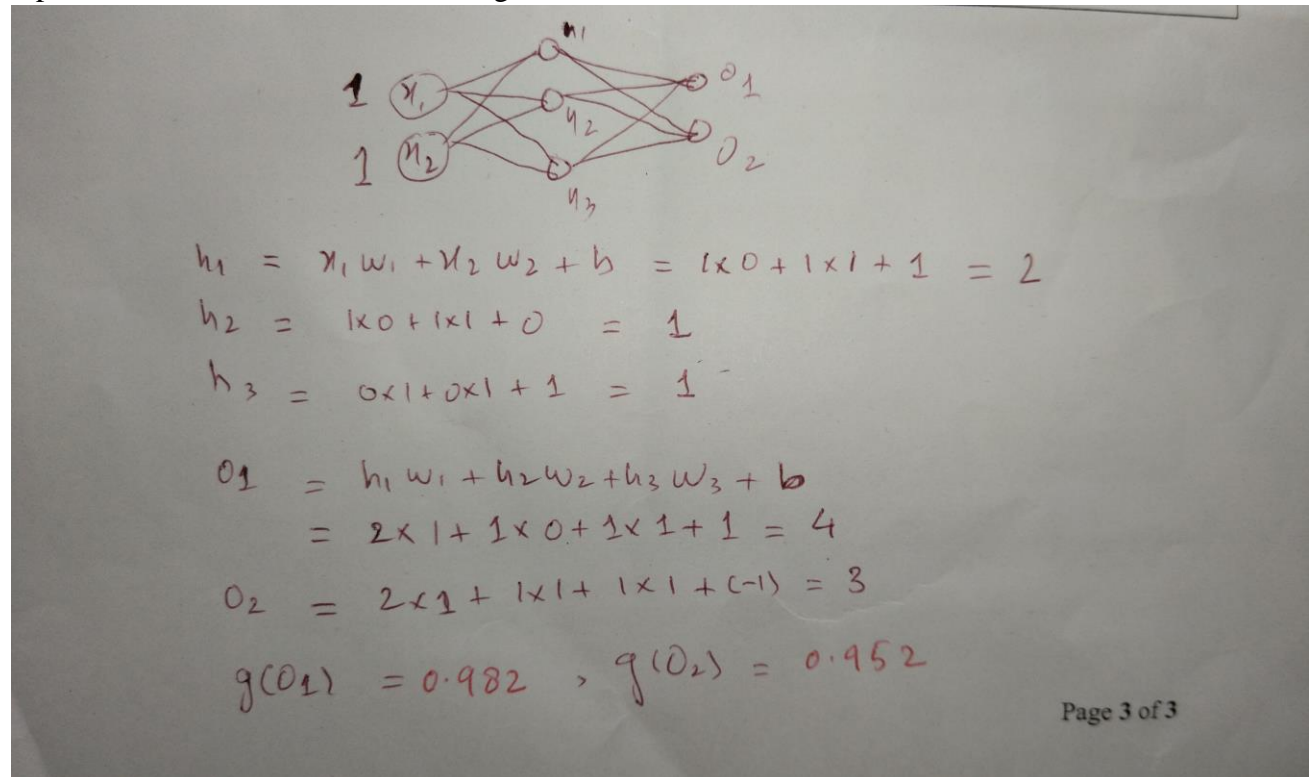 h1
1 x1 o1
h2
1 x2 O2
h3
h1 = x1 w1 + x2 w2 + b = 1x0 + 1x1 + 1 = 2
h2 = 1x0 + 1x1 + 0 = 1
h3 = 0x1 + 0x1 + 1 = 1
O1 = h1 w1 + h2 w2 + h3 w3 + b
= 2x1 + 1x0 + 1x1 + 1 = 4
O2 = 2x1 + 1x1 + 1x1 + (-1) = 3
g(O1) = 0.982 , g(O2) = 0.952
Page 3 of 3